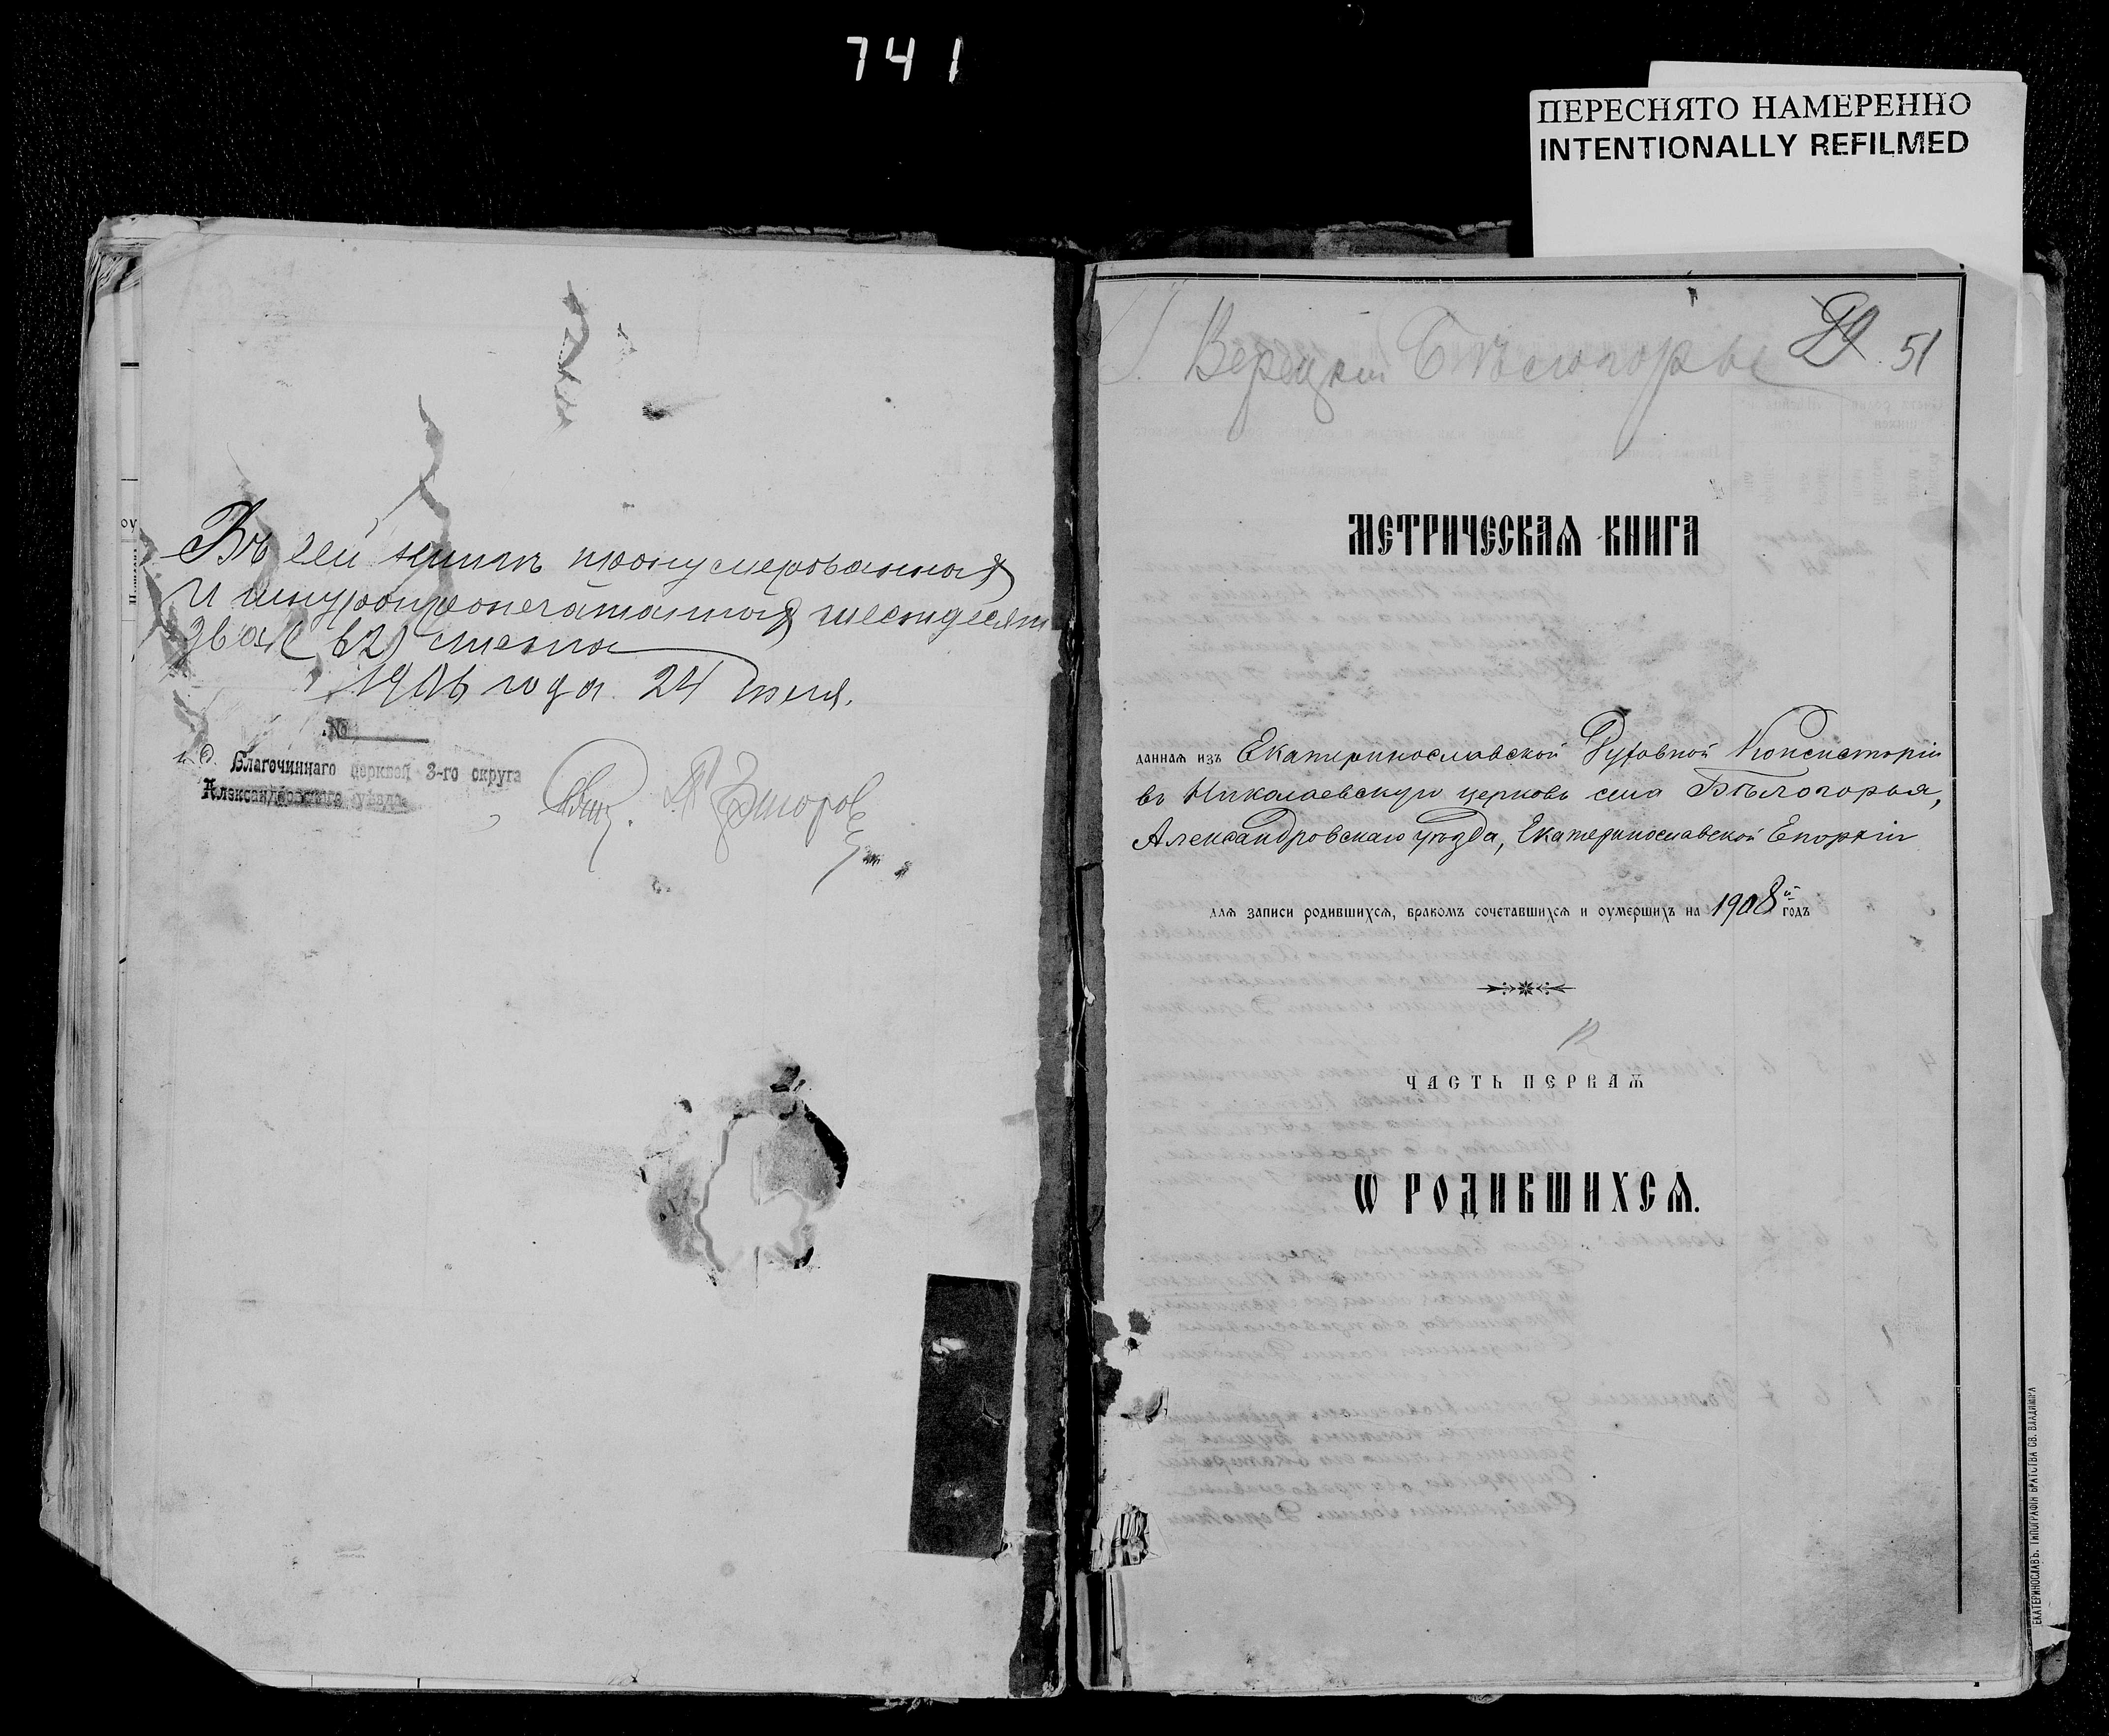 741
ПЕРЕСНЯТО НАМЕРЕННО
INTENTIONALLY REFILMED
Въ сей книгѣ пронумерованная
и шнуропропечатанная шестдесят
два (62) листа
1906 года 24 Июня.
№
и. д. Благочиннаго церквей 3-го округа
Александровскаго уѣзда
51
МЕТРИЧЕСКАѦ КНИГА
даннаѧ изъ Екатеринославской Духовной Консисторіи
въ Николаевскую церковь села Бѣлогорья,
Александровскаго уѣзда, Екатеринославской Епархіи
длѧ записи родившихсѧ, бракомъ сочетавшихсѧ и оумершихъ на 1908й годъ
ЧАСТЬ ПЕРВАѦ
Ѡ РОДИВШИХСѦ.
ЕКАТЕРИНОСЛАВЪ. ТИПОГРАФІЯ БРАТСТВА СВ. ВЛАДИМІРА